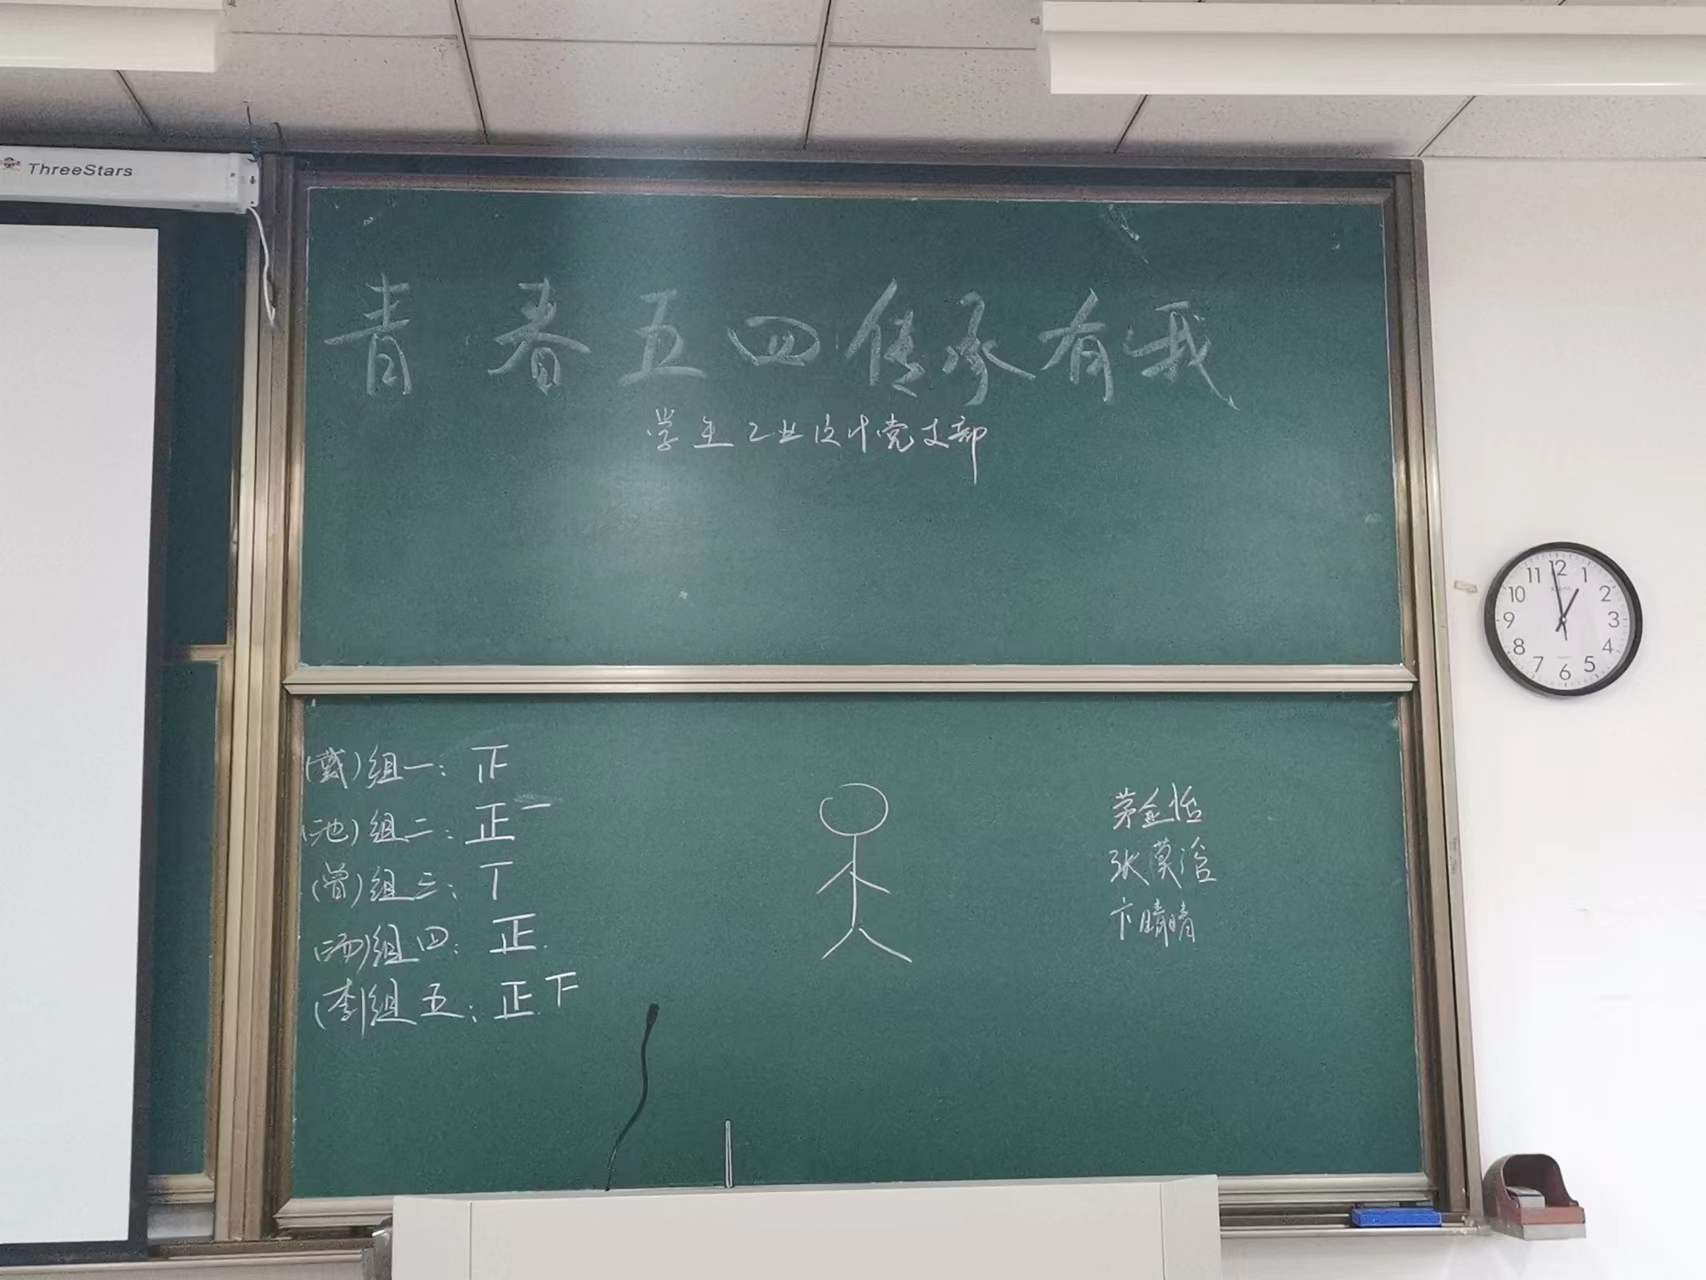 ThreeStars
青春五四传承有我
学生工业设计党支部
(戴)组一：正
(池)组二：正一
(曾)组三：丅
组四：正
(李)组五：正下
茅金恬
张漠滔
卞晴晴
12
1
2
3
4
5
6
7
8
9
10
11